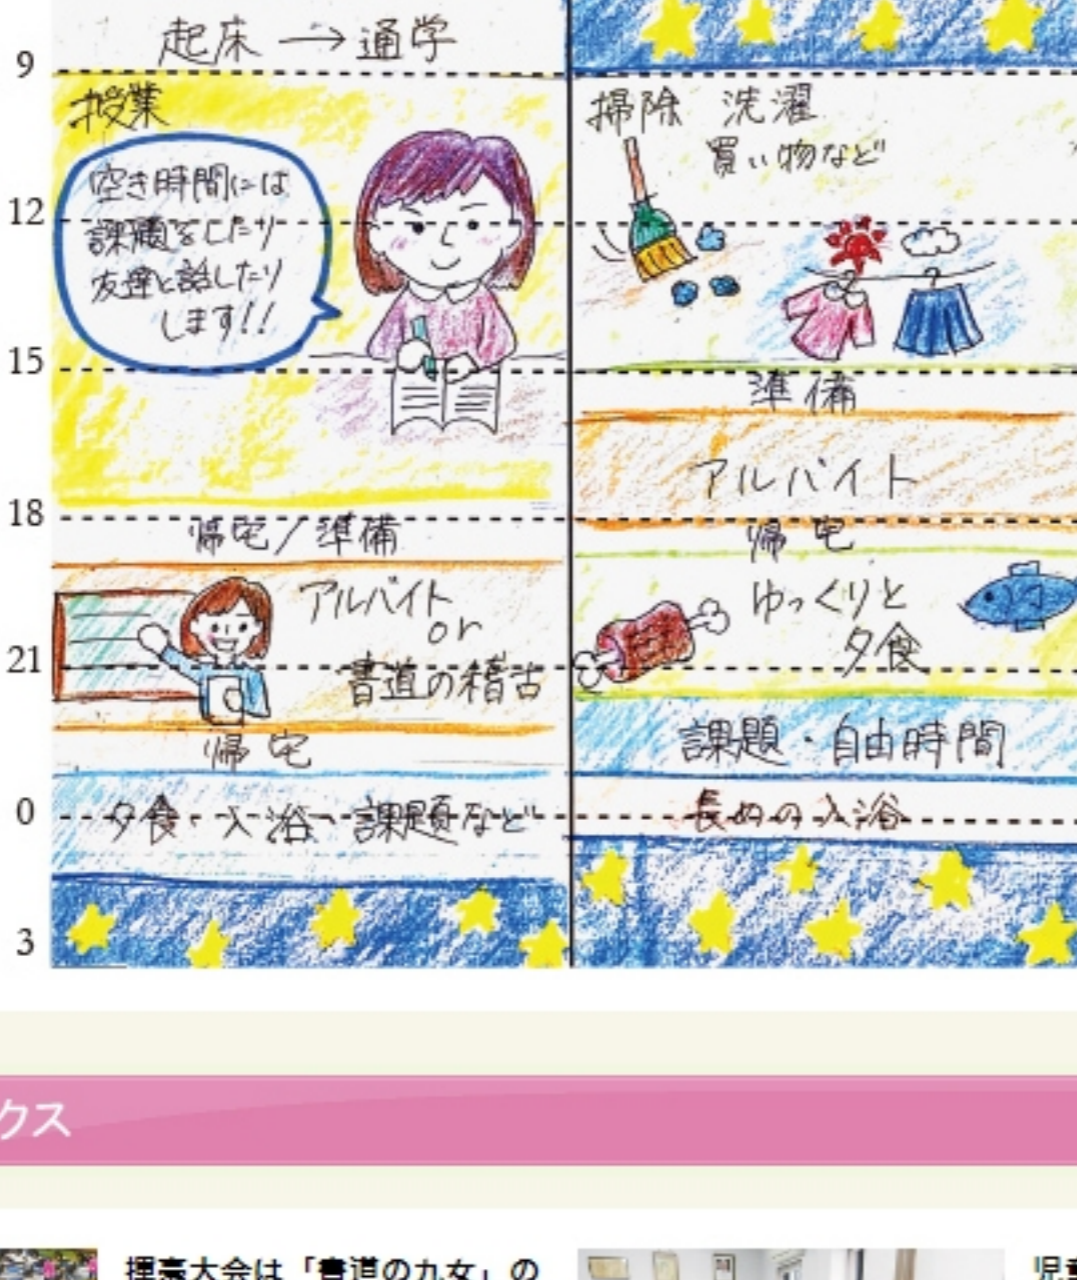 9
起床 → 通学
授業
空き時間には
課題をしたり
友達と話したり
します!!
12
15
18
帰宅/準備
アルバイト
or
書道の稽古
21
帰宅
0
夕食・入浴・課題など
3
掃除 洗濯
買い物など
準備
アルバイト
帰宅
ゆっくりと
夕食
課題・自由時間
長めの入浴
クス
揮毫大会は「書道の九女」の
児童